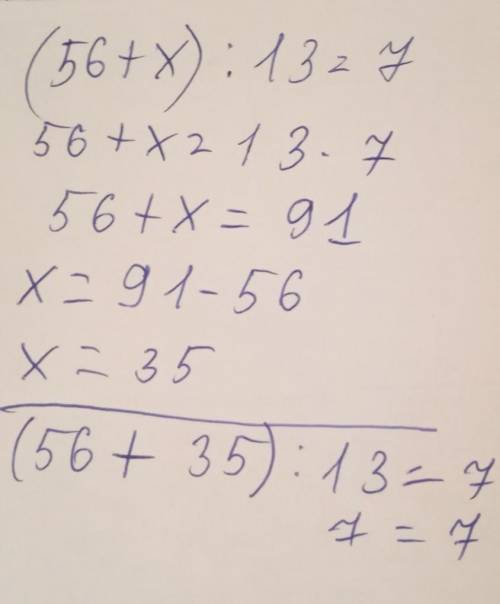 (56+x):13=7
56+x=13·7
56+x=91
x=91-56
x=35
(56+35):13=7
7=7